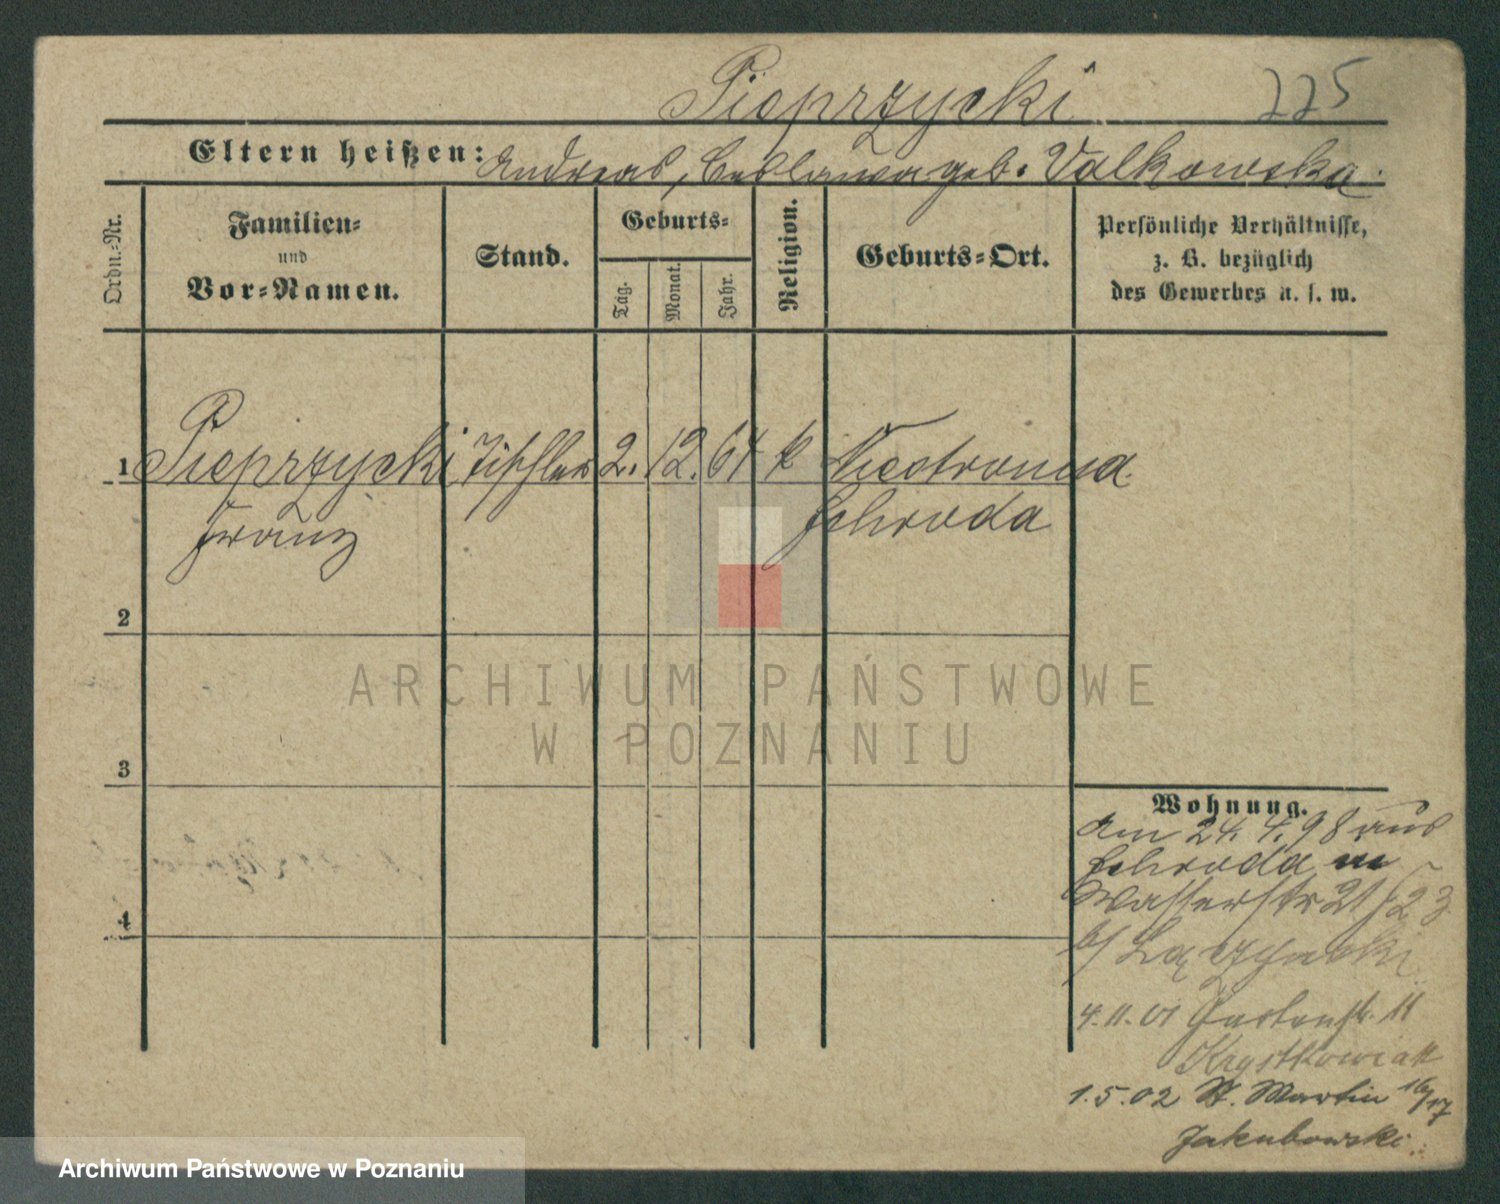 Pieprzycki 225
Eltern heißen: Andreas, geb. Valkowska.
Ordn.-Nr.
Familien-
und
Vor-Namen.
Stand.
Geburts-
Tag.
Monat.
Jahr.
Religion.
Geburts-Ort.
Persönliche Verhältnisse,
z. B. bezüglich
des Gewerbes u. s. w.
1 Pieprzycki Tischler 2. 12. 64 k
Franz Schroda
2
3
4
Wohnung.
Am 24. 4. 98 aus
Schroda in
Wasserstr 21
b/ Łączynski
4.11.01 11
Krystkowiak
1.5.02 St. Martin 16/17
Jakubowski.
ARCHIWUM PAŃSTWOWE
W POZNANIU
Archiwum Państwowe w Poznaniu